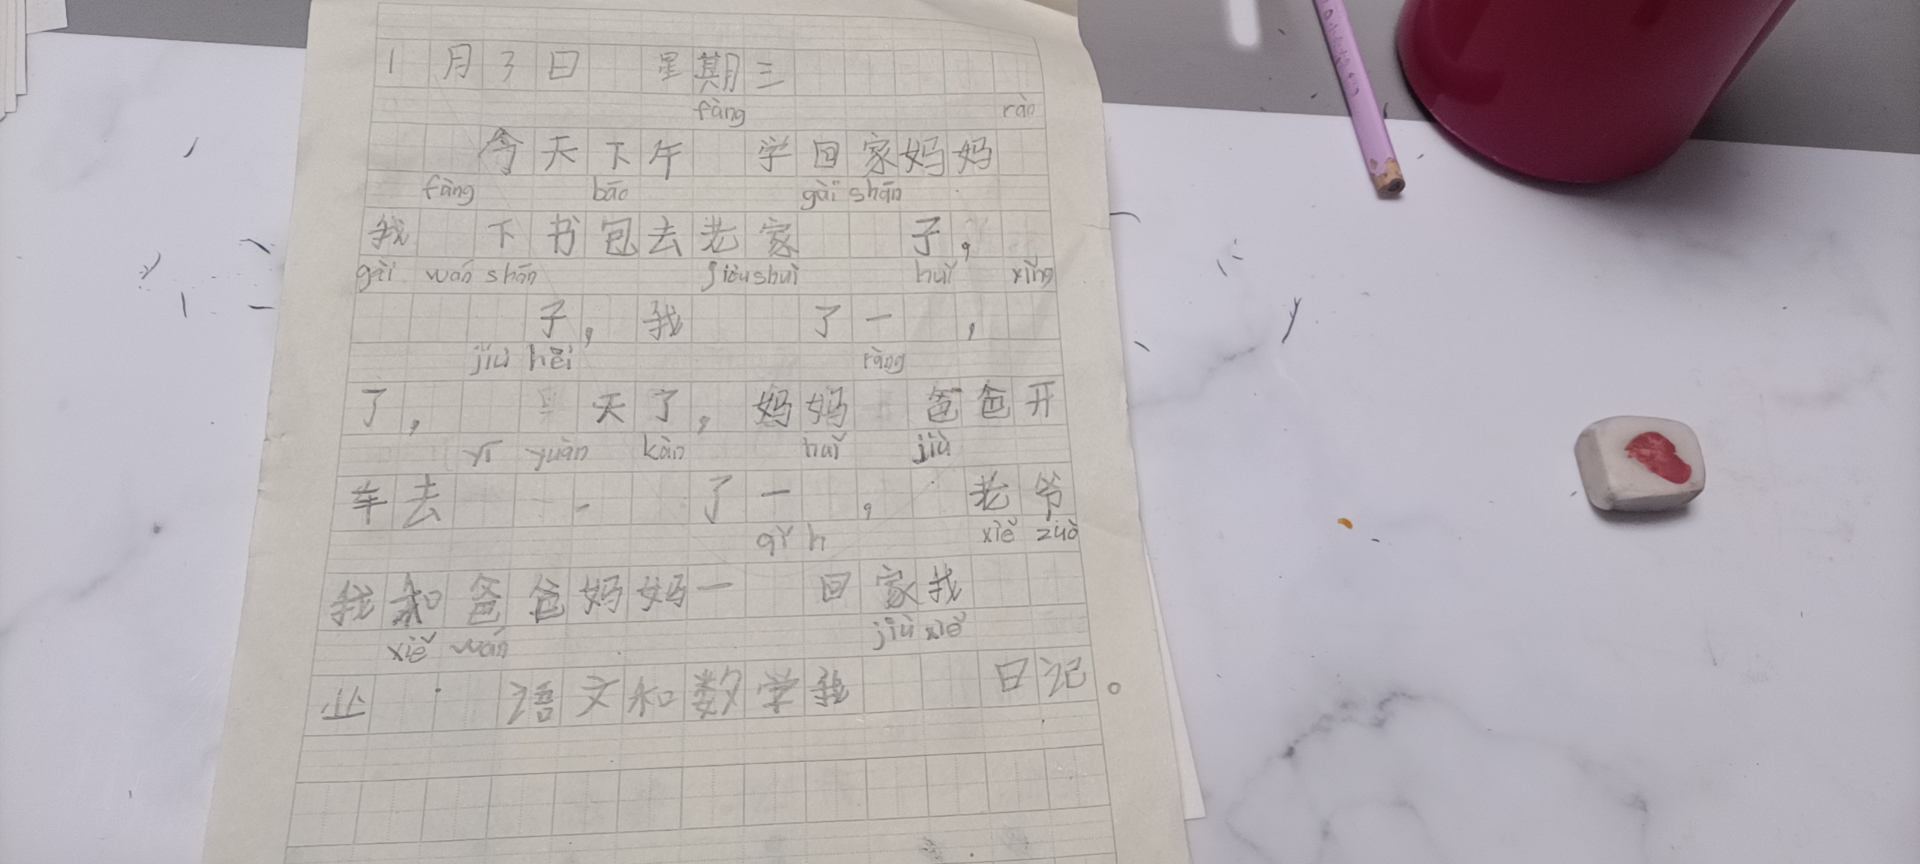 1月3日 星期三
fàng rào
今天下午 学回家妈妈
fàng bāo gài shān
我 下书包去老家 子，
gài wán shān jiù shuì huǐ xǐng
子，我 了一 ，
jiù hēi ràng
了， 天了，妈妈 爸爸开
yī yuàn kàn huǐ jiù
车去 了一 ， 老爷
qǐ xiě zuò
我和爸爸妈妈一 回家我
xiě wán jiù xiě
业 语文和数学我 日记。